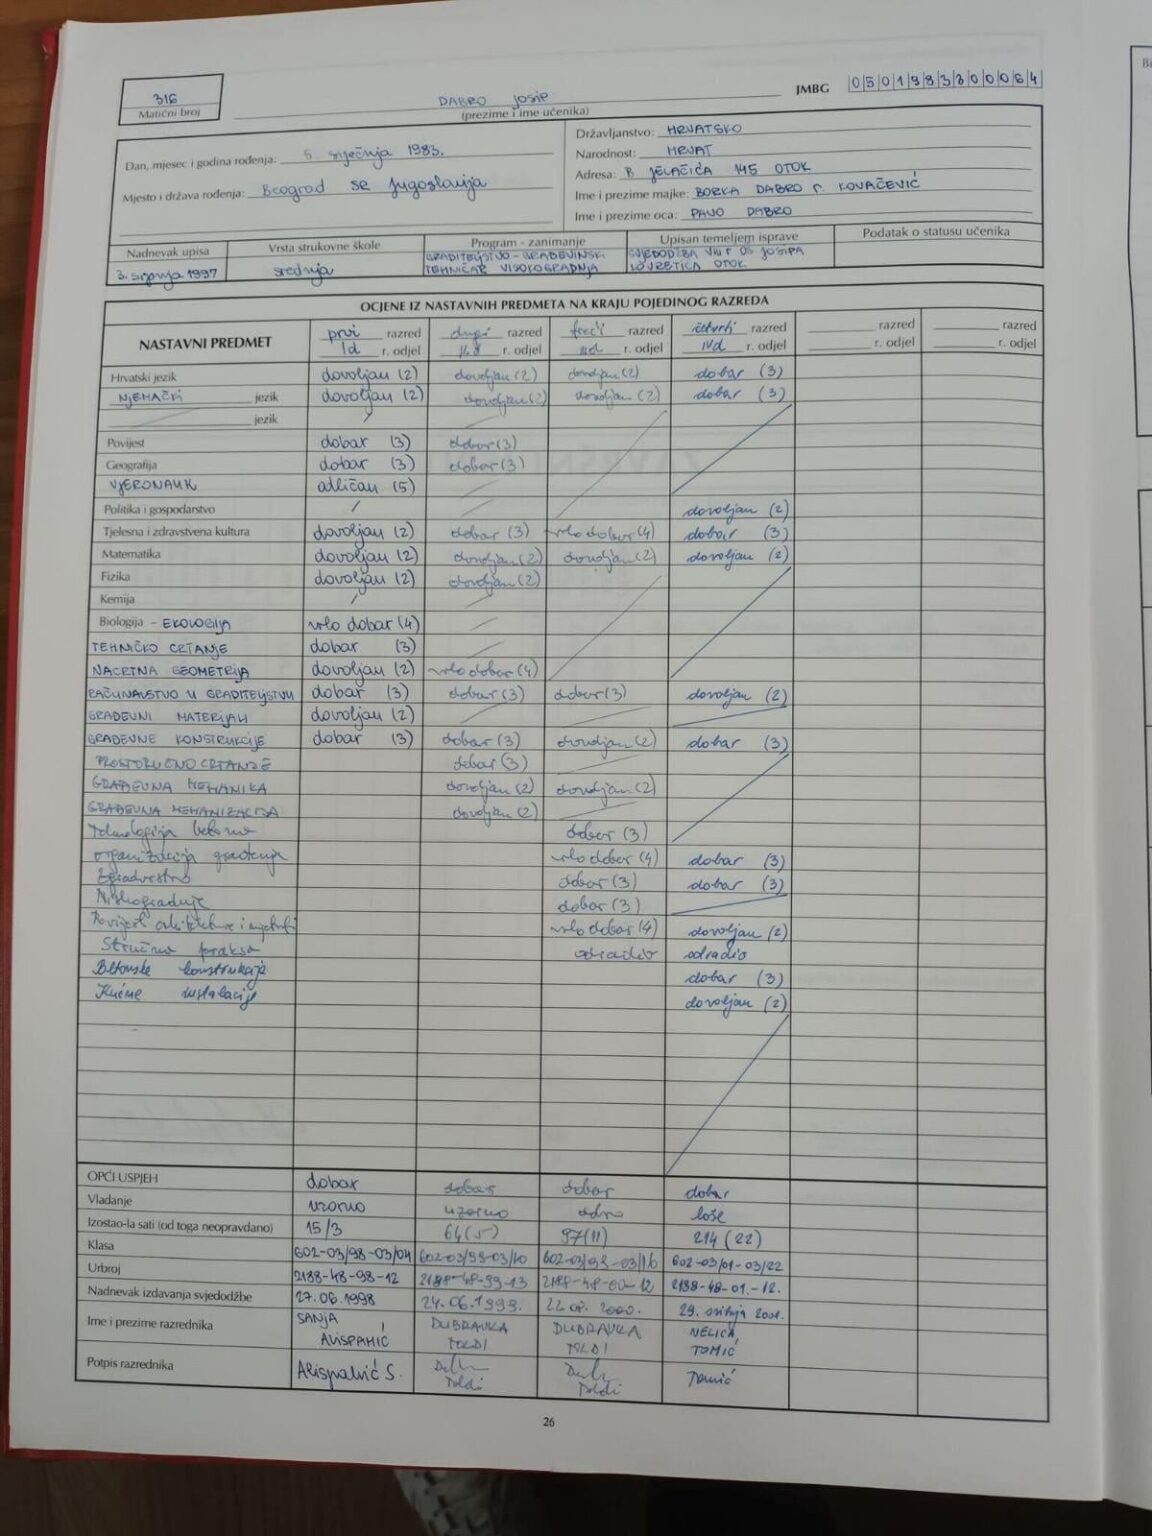 316
Matični broj
DABRO JOSIP
(prezime i ime učenika)
JMBG 0501983300064
Dan, mjesec i godina rođenja: 5 siječnja 1983.
Mjesto i država rođenja: Beograd SR Jugoslavija
Državljanstvo: HRVATSKO
Narodnost: HRVAT
Adresa: B JELAČIĆA 145 OTOK
Ime i prezime majke: BORKA DABRO r. KOVAČEVIĆ
Ime i prezime oca: PAVO DABRO
Nadnevak upisa Vrsta strukovne škole Program - zanimanje Upisan temeljem isprave Podatak o statusu učenika
3. srpnja 1997 srednja GRADITELJSTVO - GRAĐEVINSKI TEHNIČAR VISOKOGRADNJA SVJEDODŽBA VIII r OŠ JOSIPA LOVRETIĆA OTOK
OCJENE IZ NASTAVNIH PREDMETA NA KRAJU POJEDINOG RAZREDA
NASTAVNI PREDMET prvi razred drugi razred treći razred četvrti razred razred razred
Id r. odjel II.d r. odjel IIId r. odjel IVd r. odjel r. odjel r. odjel
Hrvatski jezik dovoljan (2) dovoljan (2) dovoljan (2) dobar (3)
NJEMAČKI jezik dovoljan (2) dovoljan (2) dovoljan (2) dobar (3)
jezik /
Povijest dobar (3) dobar (3)
Geografija dobar (3) dobar (3)
VJERONAUK odličan (5)
Politika i gospodarstvo / dovoljan (2)
Tjelesna i zdravstvena kultura dovoljan (2) dobar (3) vrlo dobar (4) dobar (3)
Matematika dovoljan (2) dovoljan (2) dovoljan (2) dovoljan (2)
Fizika dovoljan (2) dovoljan (2)
Kemija /
Biologija - EKOLOGIJA vrlo dobar (4)
TEHNIČKO CRTANJE dobar (3)
NACRTNA GEOMETRIJA dovoljan (2) vrlo dobar (4)
RAČUNALSTVO U GRADITELJSTVU dobar (3) dobar (3) dobar (3) dovoljan (2)
GRAĐEVNI MATERIJALI dovoljan (2)
GRAĐEVNE KONSTRUKCIJE dobar (3) dobar (3) dovoljan (2) dobar (3)
PROSTORUČNO CRTANJE dobar (3)
GRAĐEVNA MEHANIKA dovoljan (2) dovoljan (2)
GRAĐEVNA MEHANIZACIJA dovoljan (2)
Tehnologija betona dobar (3)
organizacija građenja vrlo dobar (4) dobar (3)
Zgradarstvo dobar (3) dobar (3)
Niskogradnje dobar (3)
Povijest arhitekture i vrlo dobar (4) dovoljan (2)
Stručna praksa odradio odradio
Betonske konstrukcije dobar (3)
Kućne instalacije dovoljan (2)
OPĆI USPJEH dobar dobar dobar dobar
Vladanje uzorno uzorno loše
Izostao-la sati (od toga neopravdano) 15/3 64(5) 97(11) 214 (22)
Klasa 602-03/98-03/04 602-03/99-03/10 602-03/ 602-03/01-03/22
Urbroj 2188-48-98-12 2188-48-99-13 2188-48-00-12 2188-48-01-12.
Nadnevak izdavanja svjedodžbe 27.06.1998 24.06.1999. 2000. 29. svibnja 2001.
Ime i prezime razrednika SANJA ALISPAHIĆ DUBRAVKA TOLDI DUBRAVKA TOLDI NELICA TOMIĆ
Potpis razrednika Alispahić S. Toldi Toldi Tomić
26